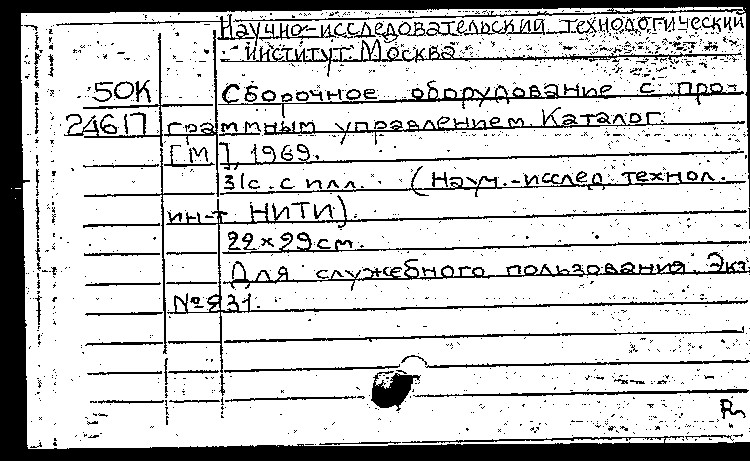 Научно-исследовательский технологический
институт. Москва
50К Сборочное оборудование с про-
24617 граммным управлением. Каталог.
[М], 1969.
31с. с илл. (Науч.-исслед. технол.
ин-т НИТИ).
22×29см.
Для служебного пользования. Экз.
№831.